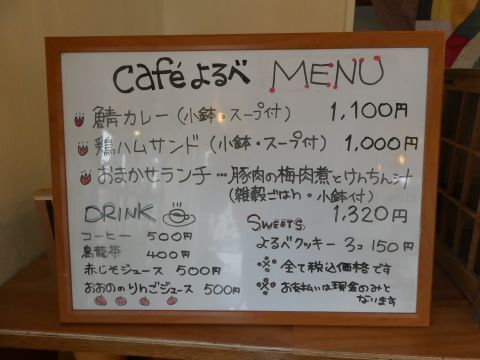 Caféよるべ MENU
鯖カレー(小鉢・スープ付) 1,100円
鶏ハムサンド(小鉢・スープ付) 1,000円
おまかせランチ…豚肉の梅肉煮とけんちん汁
(雑穀ごはん・小鉢付)
1,320円
DRINK
コーヒー 500円
烏龍茶 400円
赤じそジュース 500円
おおののりんごジュース 500円
SWEETS
よるべクッキー 3コ 150円
※全て税込価格です
※お支払いは現金のみと
なります